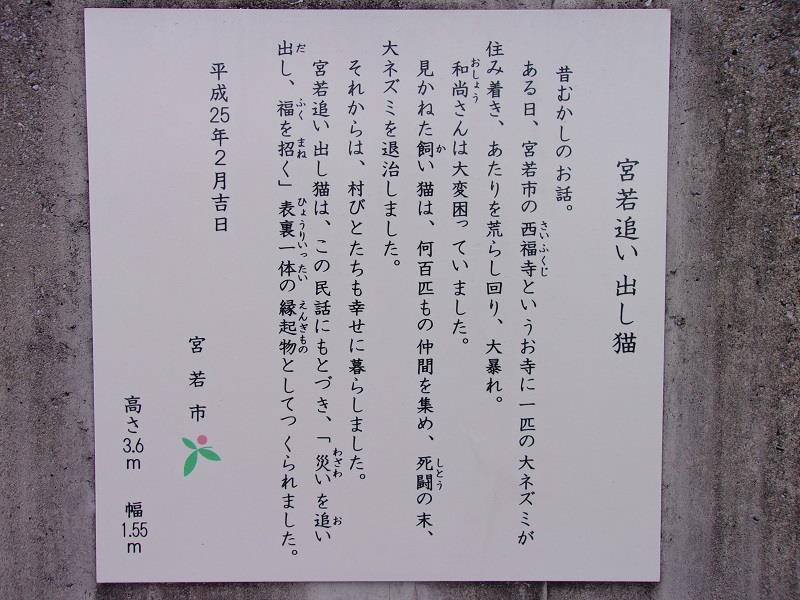 宮若追い出し猫
昔むかしのお話。
ある日、宮若市の西福寺というお寺に一匹の大ネズミが
住み着き、あたりを荒らし回り、大暴れ。
和尚さんは大変困っていました。
見かねた飼い猫は、何百匹もの仲間を集め、死闘の末、
大ネズミを退治しました。
それからは、村びとたちも幸せに暮らしました。
宮若追い出し猫は、この民話にもとづき、「災いを追い
出し、福を招く」表裏一体の縁起物としてつくられました。
平成25年2月吉日
宮若市
高さ3.6m 幅1.55m